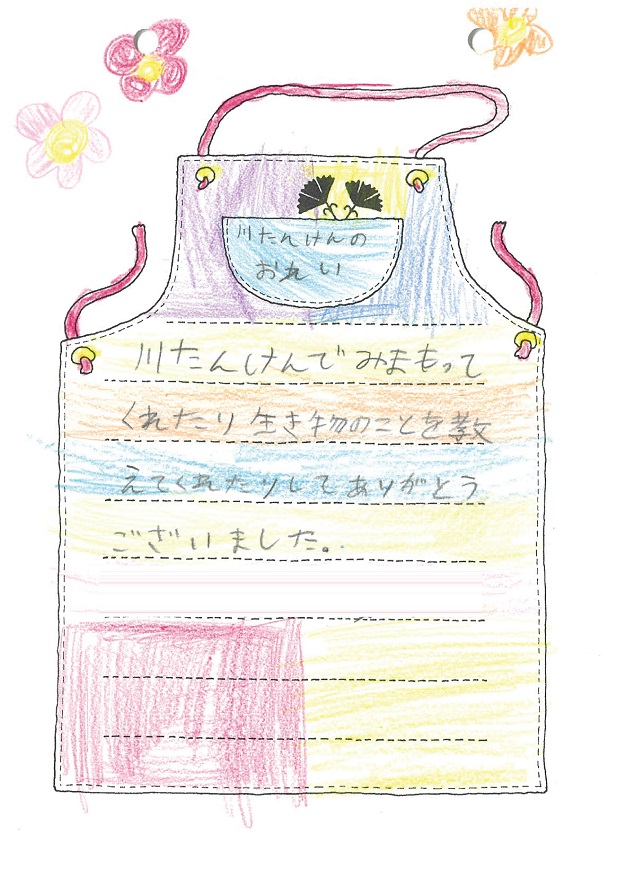 川たんけんの
おれい
川たんけんでみまもって
くれたり生き物のことを教
えてくれたりしてありがとう
ございました。